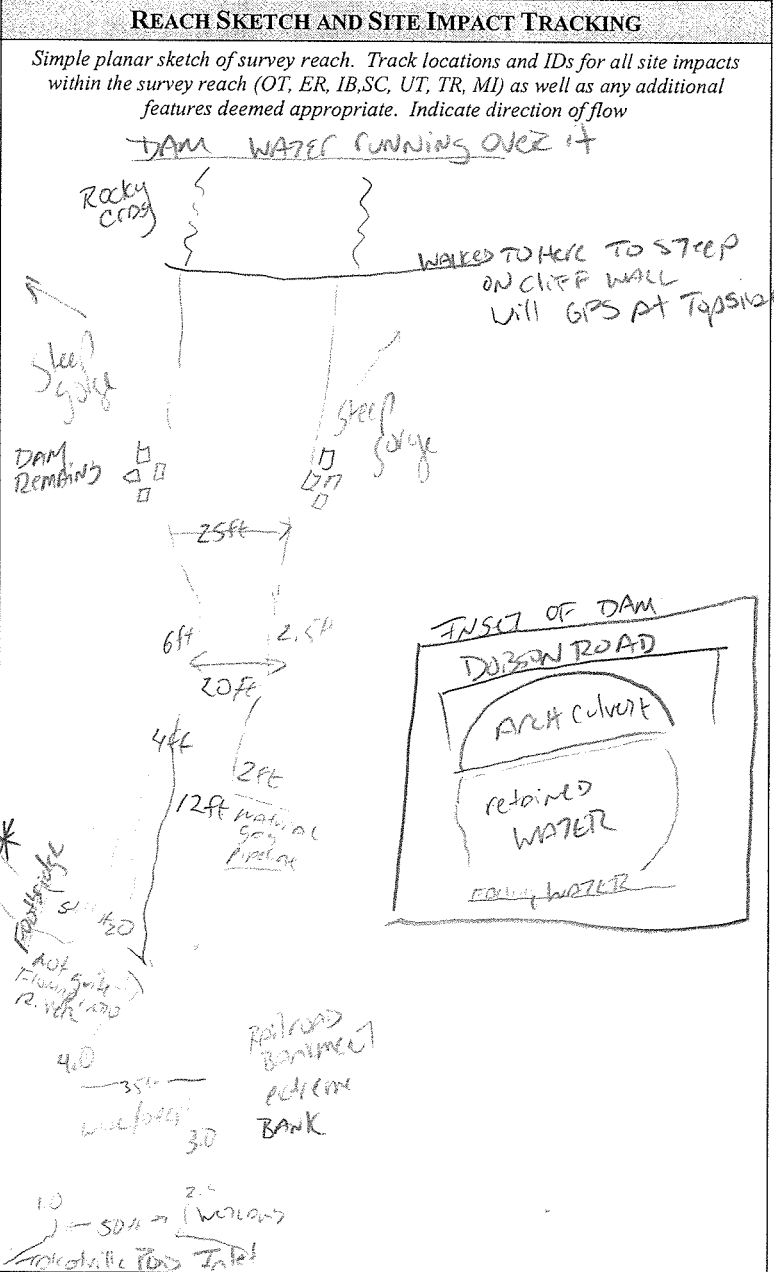 REACH SKETCH AND SITE IMPACT TRACKING
Simple planar sketch of survey reach. Track locations and IDs for all site impacts
within the survey reach (OT, ER, IB,SC, UT, TR, MI) as well as any additional
features deemed appropriate. Indicate direction of flow
DAM WATER RUNNING OVER it
ROCKY
WALKED TO HERE TO STEEP
ON CLIFF WALL
Will GPS AT
Steep
gorge
Steep
gorge
DAM
REMAINS
25ft
6ft
2.5ft
20ft
4ft
2ft
12ft
Natural
gas
Pipeline
INSET OF DAM
DOBSON ROAD
ARCH Culvert
retained
WATER
WATER
Footbridge
20
Railroad
4.0
35
extreme
BANK
3.0
1.0
50ft
Pond Inlet